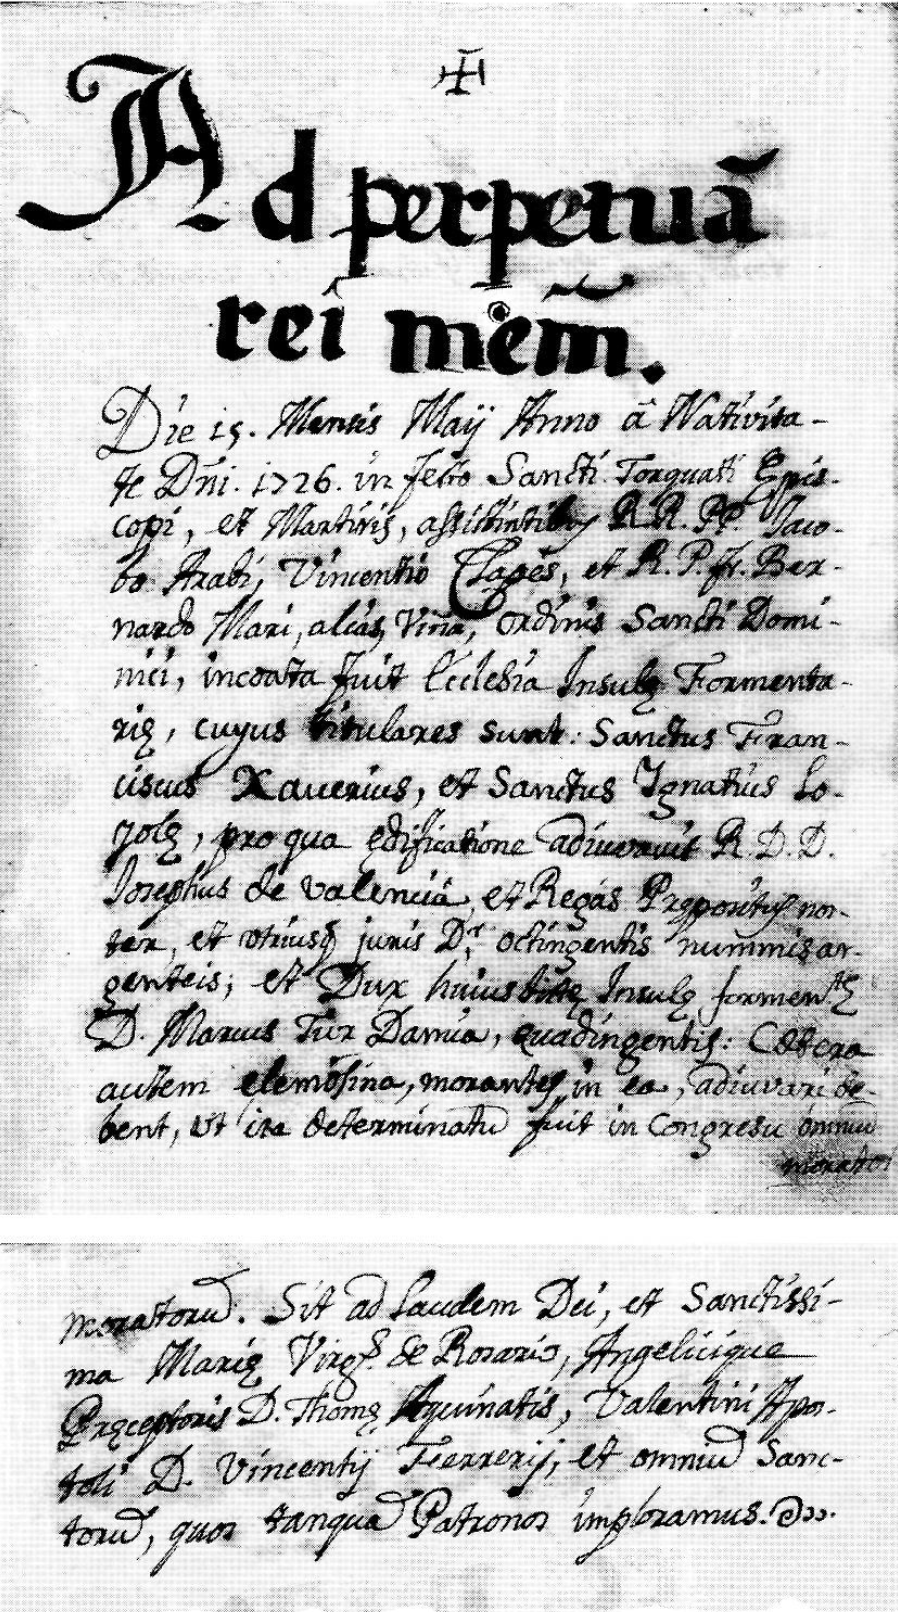 Ad perpetuã
rei mẽm.
Die 15. Mensis Maij Anno â Nativita-
te Dñi. 1726. in festo Sancti Torquati Epis-
copi, et Martiris, assistintibus R.R. PP. Jaco-
bo Arabi, Vincentio Clapes, et R. P. Fr. Ber-
nardo Mari, alias, Viña, Ordinis Sancti Domi-
nici, incoata fuit Ecclesia Insulę Formenta-
rię, cuyus titulares sunt: Sanctus Fran-
ciscus Xaverius, et Sanctus Ignatius Lo-
yolę, pro qua ędificatione adiuvavit R. D. D.
Josephus de Valencia, et Regás Prępositus nos-
ter, et utriusq̃ juris Dr. octingentis nummis ar-
genteis; et Dux huius Insulę formentę
D. Marcus Tur Damia, quadingentis: Cætera
autem elemosina, morantes in ea, adiuvari de-
bent, ut ita determinatũ fuit in Congresu omniũ
morator
moratorũ. Sit ad Laudem Dei, et Sanctissi-
ma Marię Virgs. de Rosario, Angelicique
Pręceptoris D. Thomę Aquinatis, Valentini Apos-
toli D. Vincentij Ferrerij, et omniũ Sanc-
torũ, quos tanquã Patronos imploramus.